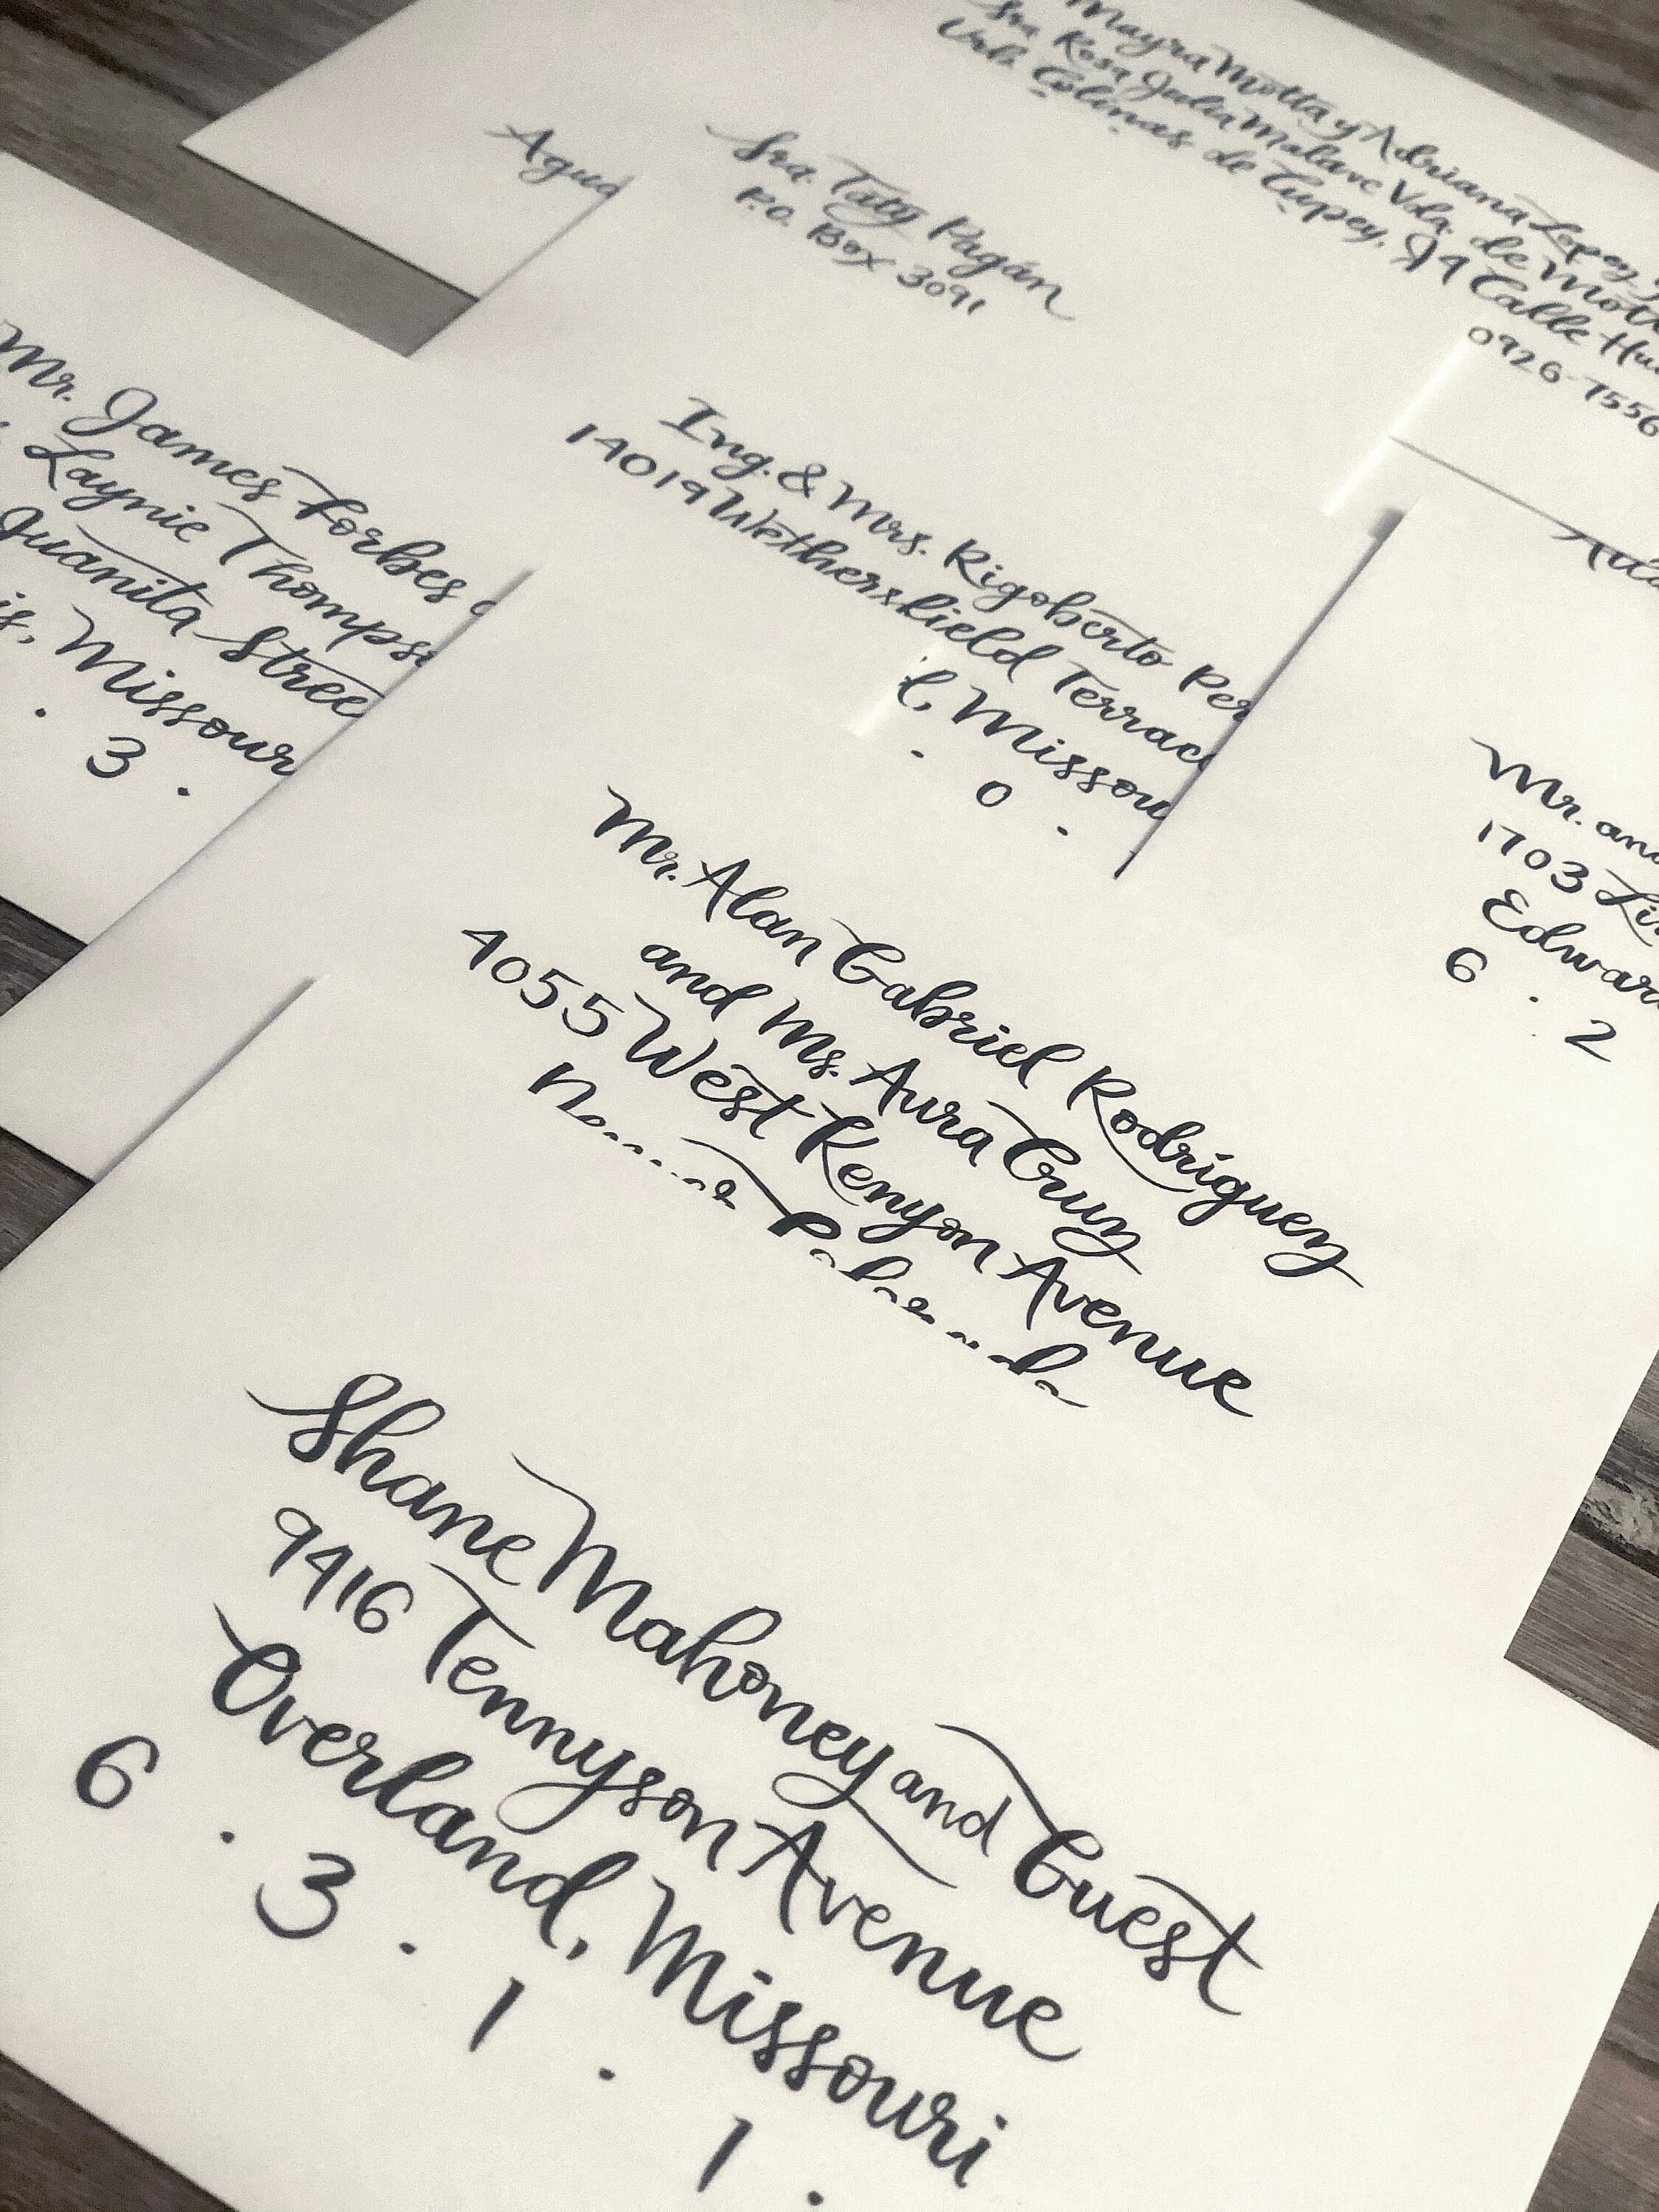 Mayra Motta y Adriana López
Sra. Rosa Julia Malavé Vda. de Mott
Urb. Colinas de Cupey, J4 Calle Hu
0926-7556
Agua
Sra. Taty Pagán
P.O. Box 3091
Mr. James Forbes
Laynie Thomps
Juanita Stree
is, Missour
. 3 .
Ing. & Mrs. Rigoberto Per
14019 Wethersfield Terrac
l, Missou
. 0 .
Mr. and
1703 Lin
Edwar
6 . 2
Mr. Alan Gabriel Rodríguez
and Ms. Aura Cruz
4055 West Kenyon Avenue
Shane Mahoney and Guest
9416 Tennyson Avenue
Overland, Missouri
6 . 3 . 1 . 1 .